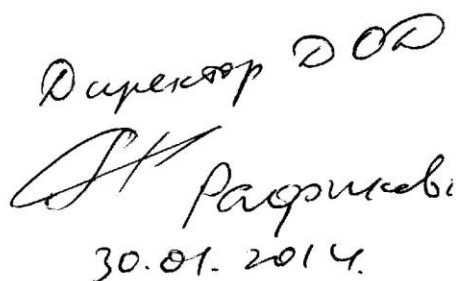 Директор ДОД
Рафиков
30.01.2014.